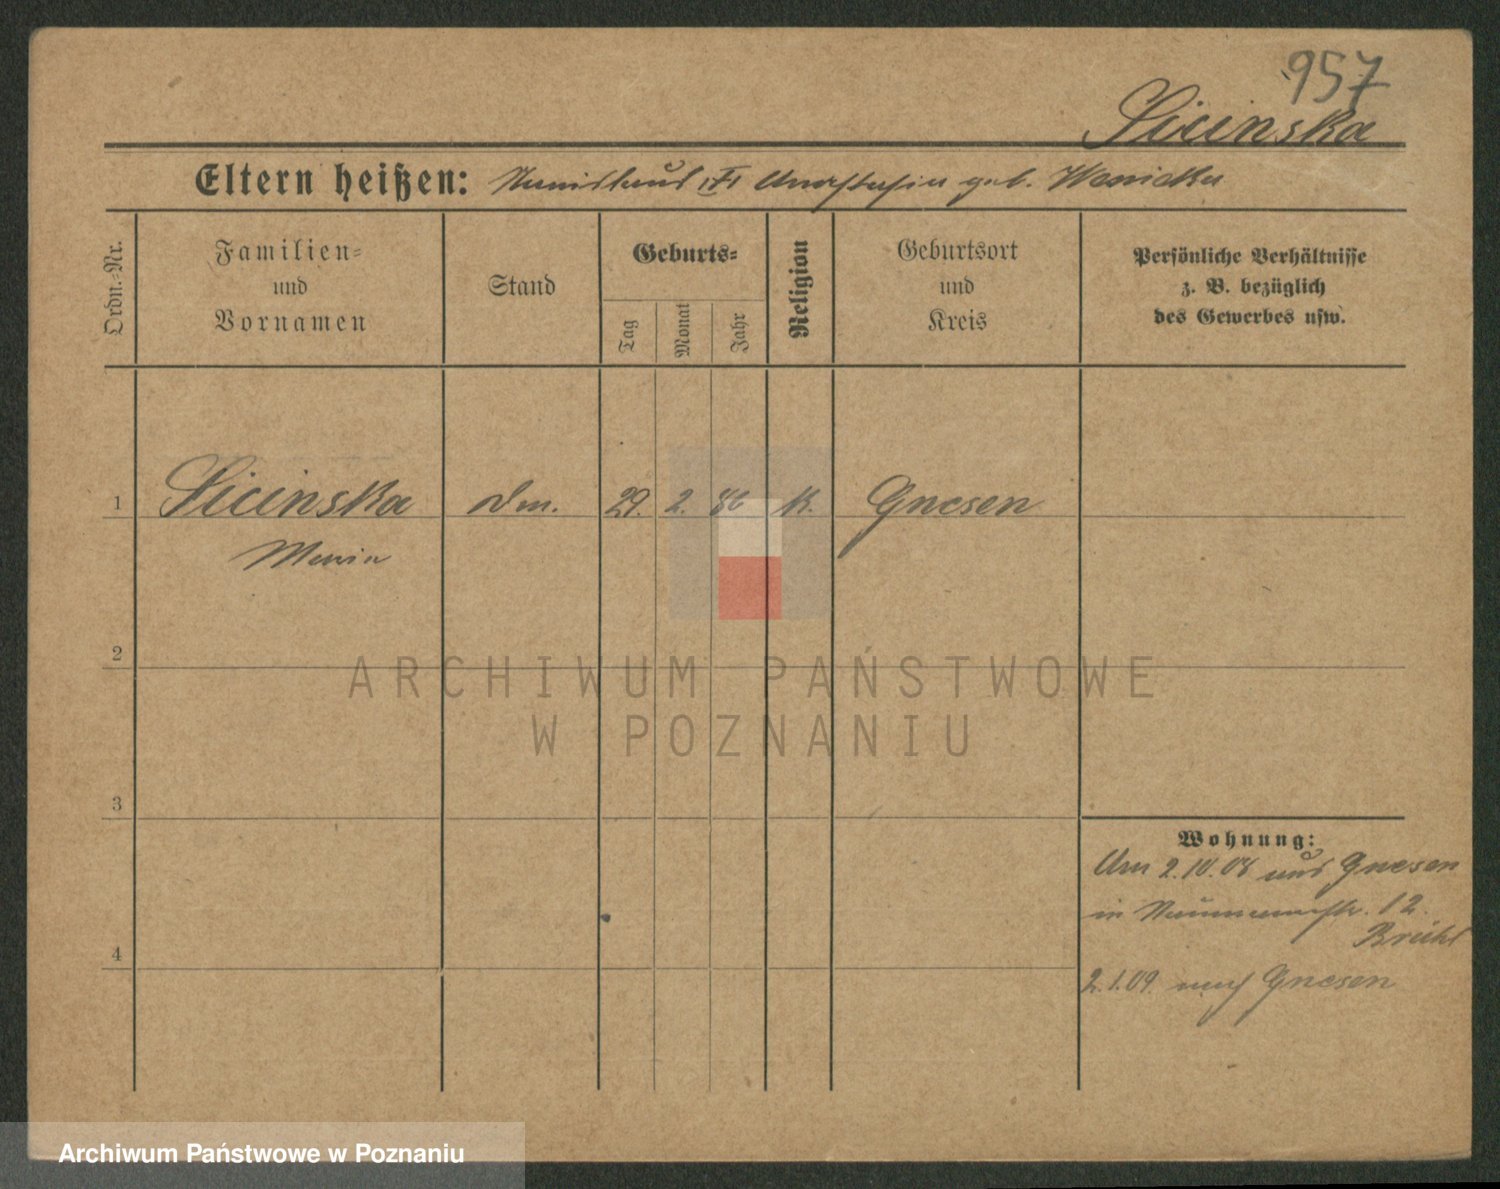 957
Sicinska
Eltern heißen: Stanislaus u. Anastasia geb.
Ordn.-Nr.
Familien-
und
Vornamen
Stand
Geburts-
Tag
Monat
Jahr
Religion
Geburtsort
und
Kreis
Persönliche Verhältnisse
z. B. bezüglich
des Gewerbes usw.
1 Sicinska 29. 2. 86 k. Gnesen
Maria
2
ARCHIWUM PAŃSTWOWE
W POZNANIU
3
Wohnung:
Am 2.10.08 aus Gnesen
in Naumannstr. 12.
4
2.1.09. nach Gnesen
Archiwum Państwowe w Poznaniu